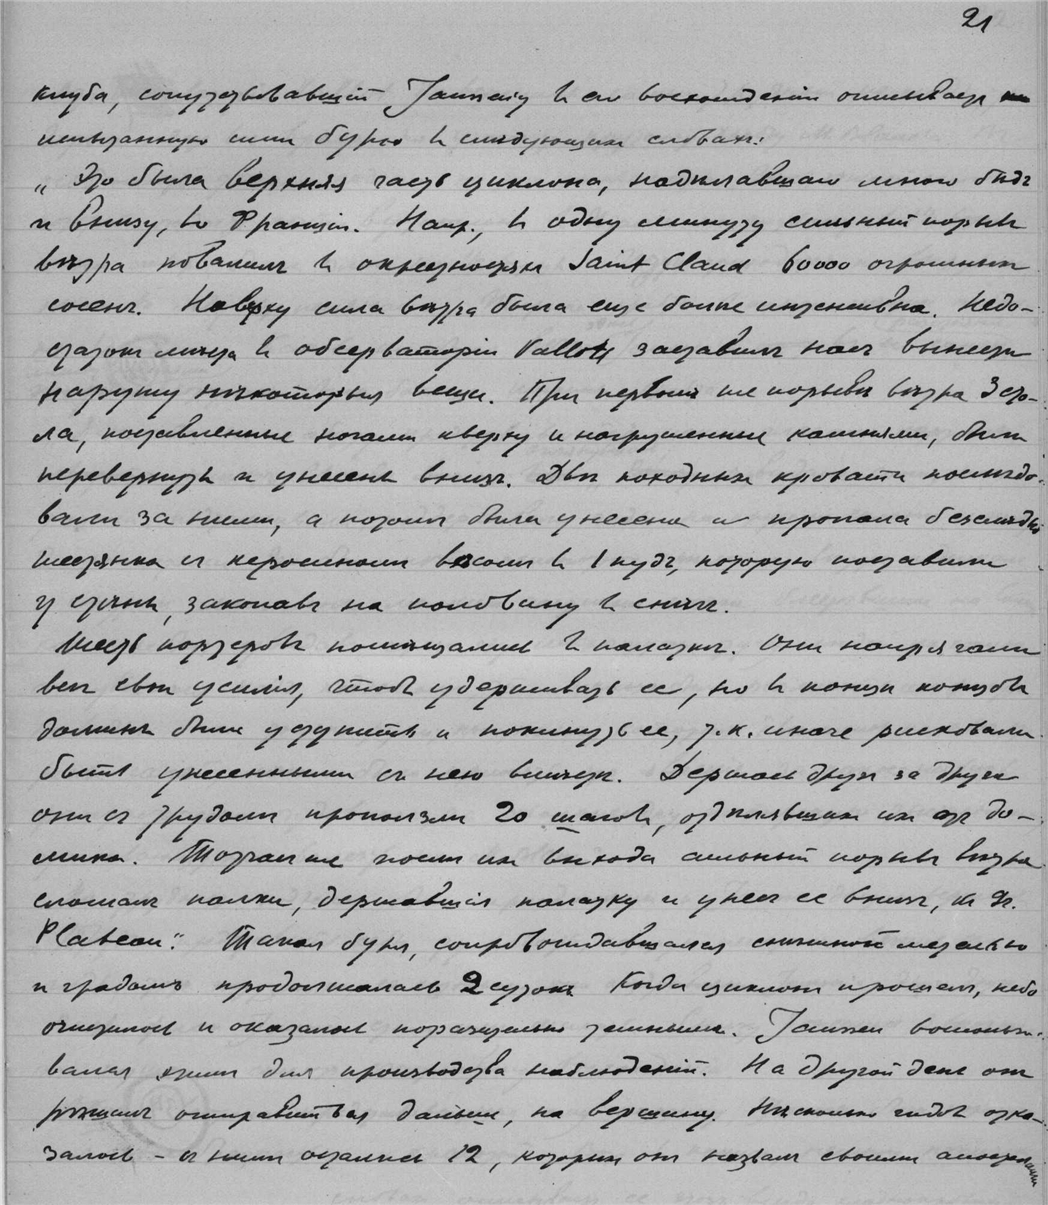 21
клуба, сопутствовавшій Janssen'у въ его восхожденіи описываетъ
испытанную ими бурю въ слѣдующихъ словахъ:
„ Это была верхняя часть циклона, надѣлавшаго много бѣдъ
и внизу, во Франціи. Напр., въ одну минуту сильный порывъ
вѣтра повалилъ въ окрестностяхъ Saint Claud 60000 огромныхъ
сосенъ. Наверху сила вѣтра была еще болѣе интенсивна. Недо-
статокъ мѣста въ обсерваторіи Vallot заставилъ насъ вынести
наружу нѣкоторыя вещи. При первомъ же порывѣ вѣтра 3 сто-
ла, поставленные ногами кверху и нагруженные камнями, были
перевернуты и унесены внизъ. Двѣ походныхъ кровати послѣдо-
вали за ними, а потомъ была унесена и пропала безслѣдно
жестянка съ керосиномъ вѣсомъ въ 1 пудъ, которую поставили
у стѣны, закопавъ на половину въ снѣгъ.
Шесть портеровъ помѣщались въ палаткѣ. Они напрягали
всѣ свои усилія, чтобъ удерживать ее, но въ концѣ концовъ
должны были уступить и покинуть ее, т.к. иначе рисковали
быть унесенными съ нею вмѣстѣ. Держась другъ за друга
они съ трудомъ проползли 20 шаговъ, отдѣлявшихъ ихъ отъ до-
мика. Тотчасъ же послѣ ихъ выхода сильный порывъ вѣтра
сломалъ палки, державшія палатку и унесъ ее внизъ, къ Gr.
Plateau." Такая буря, сопровождавшаяся снѣжной метелью
и градомъ продолжалась 2 сутокъ Когда циклонъ прошелъ, небо
очистилось и оказалось поразительно темнымъ. Janssen воспользо-
вался этимъ для производства наблюденій. На другой день онъ
рѣшилъ отправиться дальше, на вершину. Нѣсколько гидовъ отка-
залось – съ ними остались 12, которыхъ онъ назвалъ своими апостолами